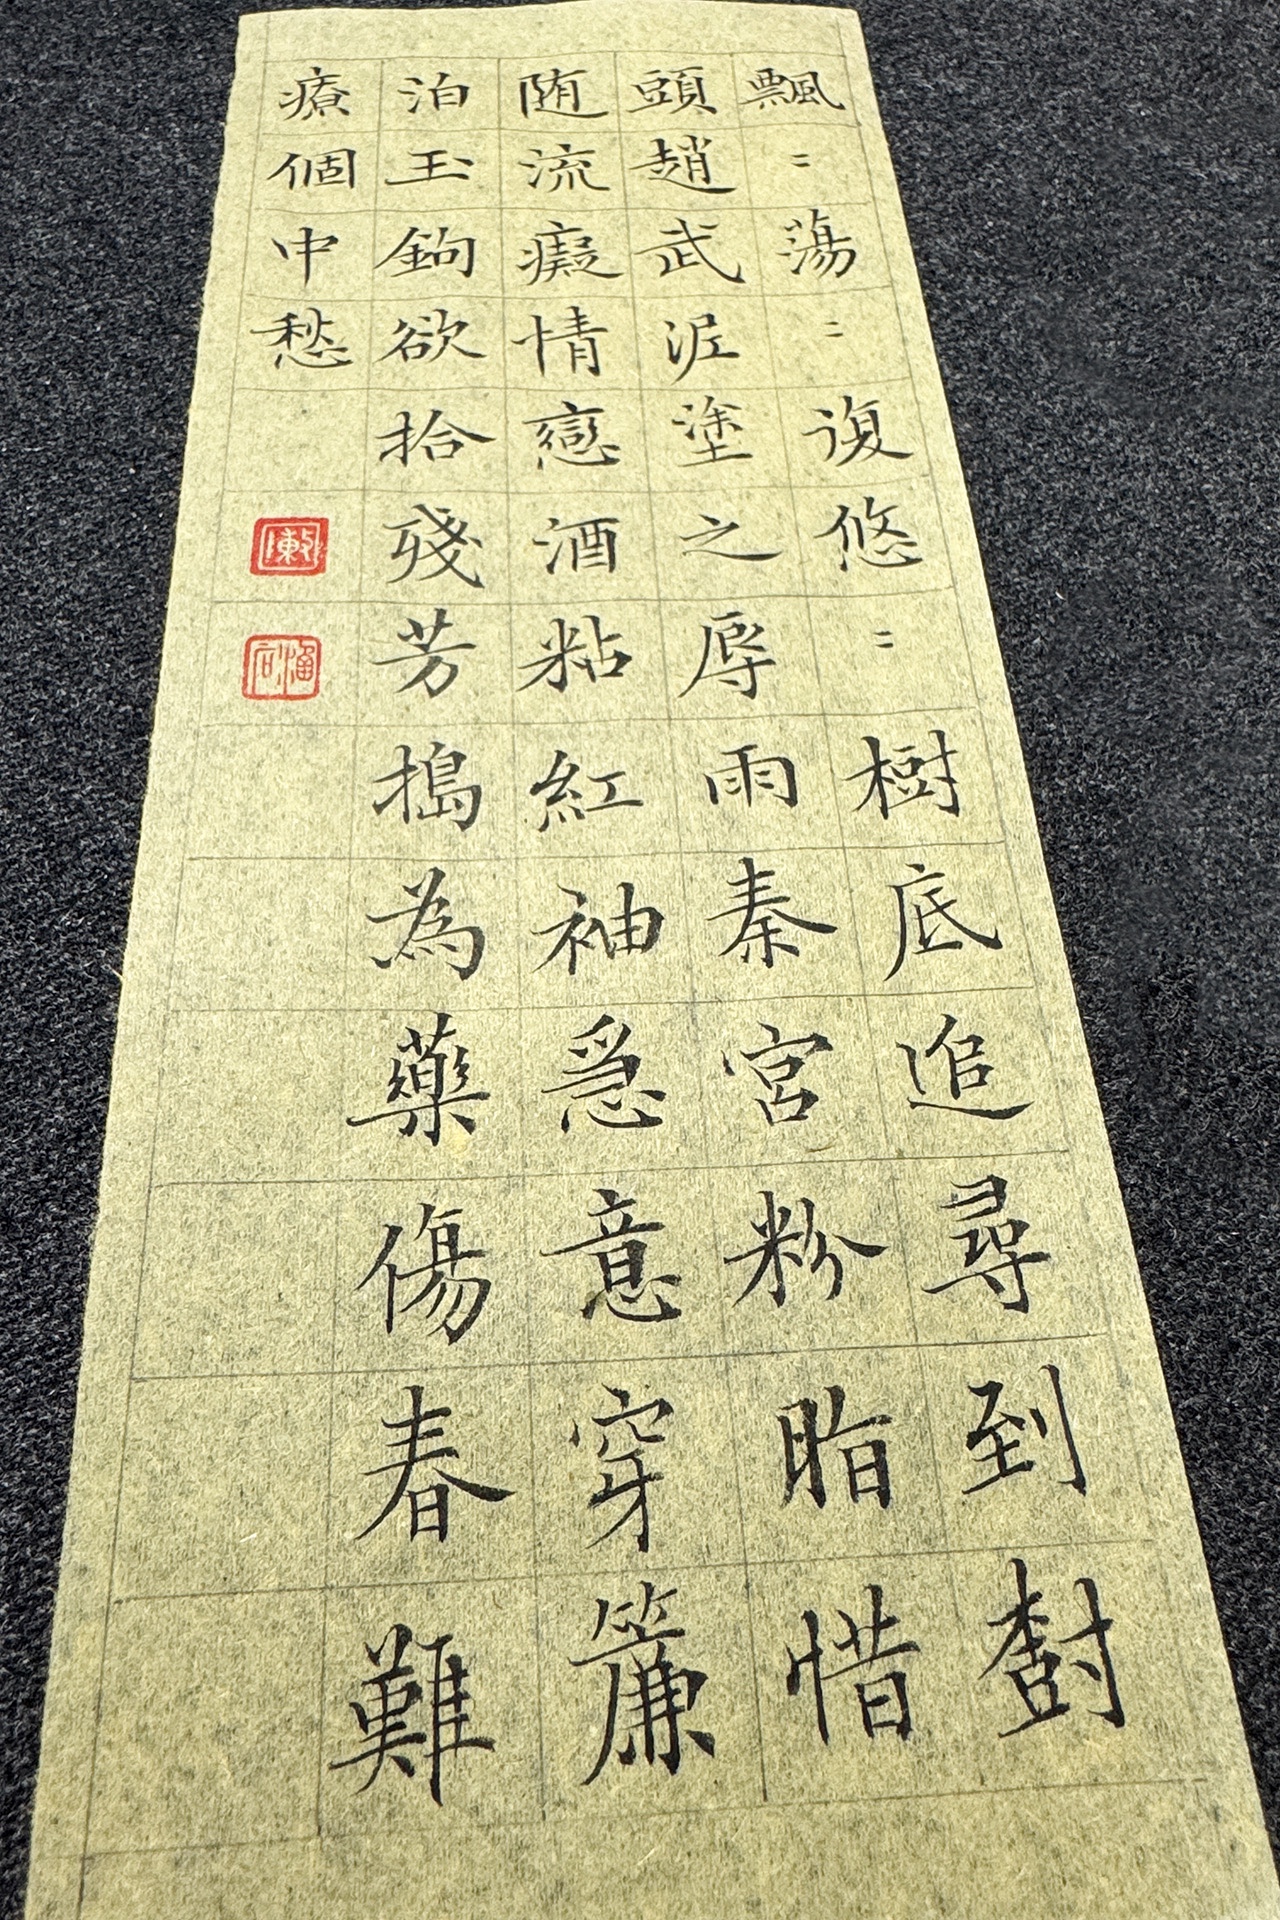 飄=蕩=復悠=樹底追尋到樹
頭趙武泥塗之辱雨秦宮粉脂惜
随流癡情戀酒粘紅袖急意穿簾
泊玉鉤欲拾殘芳搗為藥傷春難
療個中愁